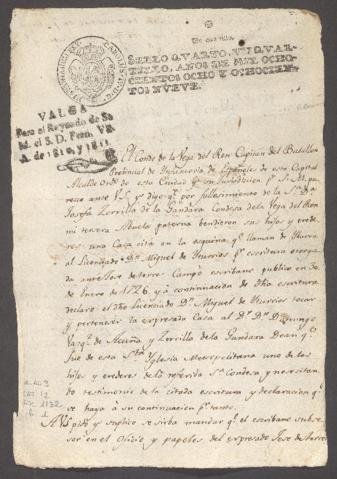 Un quartillo.
SELLO QUARTO, UN QUAR-
TILLO, AÑOS DE MIL OCHO-
CIENTOS OCHO Y OCHOCIEN-
TOS NUEVE.
VALGA
Para el Reynado de Sa
Md. el S. D. Fern. VII.
A. de 1810, y 1811.
El Conde de la Vega del Ren Capitan del Batallon
Provincial de Infanteria de Españoles de esta Capital
Alcalde Ord.o de esta Ciudad y su Jurisdiccion
reco ante V.S. y digo q.e por fallesimiento de la S.ra D.a
Josefa Zorrilla de la Gandara Condesa de la Vega del Ren
mi tersera Abuela paterna bendieron sus hijos y erede-
res una Casa cita en la esquina q.e llaman de Yturri
al Licenciado D.n Miguel de Yturrios p.r escritura otorga-
da ante Jose de torres Campo escribano publico en
de Enero de 1726. y a continuacion de dha escritura
declaro el dho Licenciado D.n Miguel de Yturrios tocar
y pertenecer la expresada Casa al D.r D.n
de Acuña y Zorrilla de la Gandara Dean q.e
fue de esta S.ta Yglesia Metropolitana uno de los
hijos y erederes de la referida S.ra Condesa y nesesitan-
do testimonio de la citada escritura y declaracion q.e
se haya á su continuacion p.r tanto.
A V.S. pido y suplico se sirba mandar q.e el escribano subse-
sor en el Oficio y papeles del expresado Jose de torres